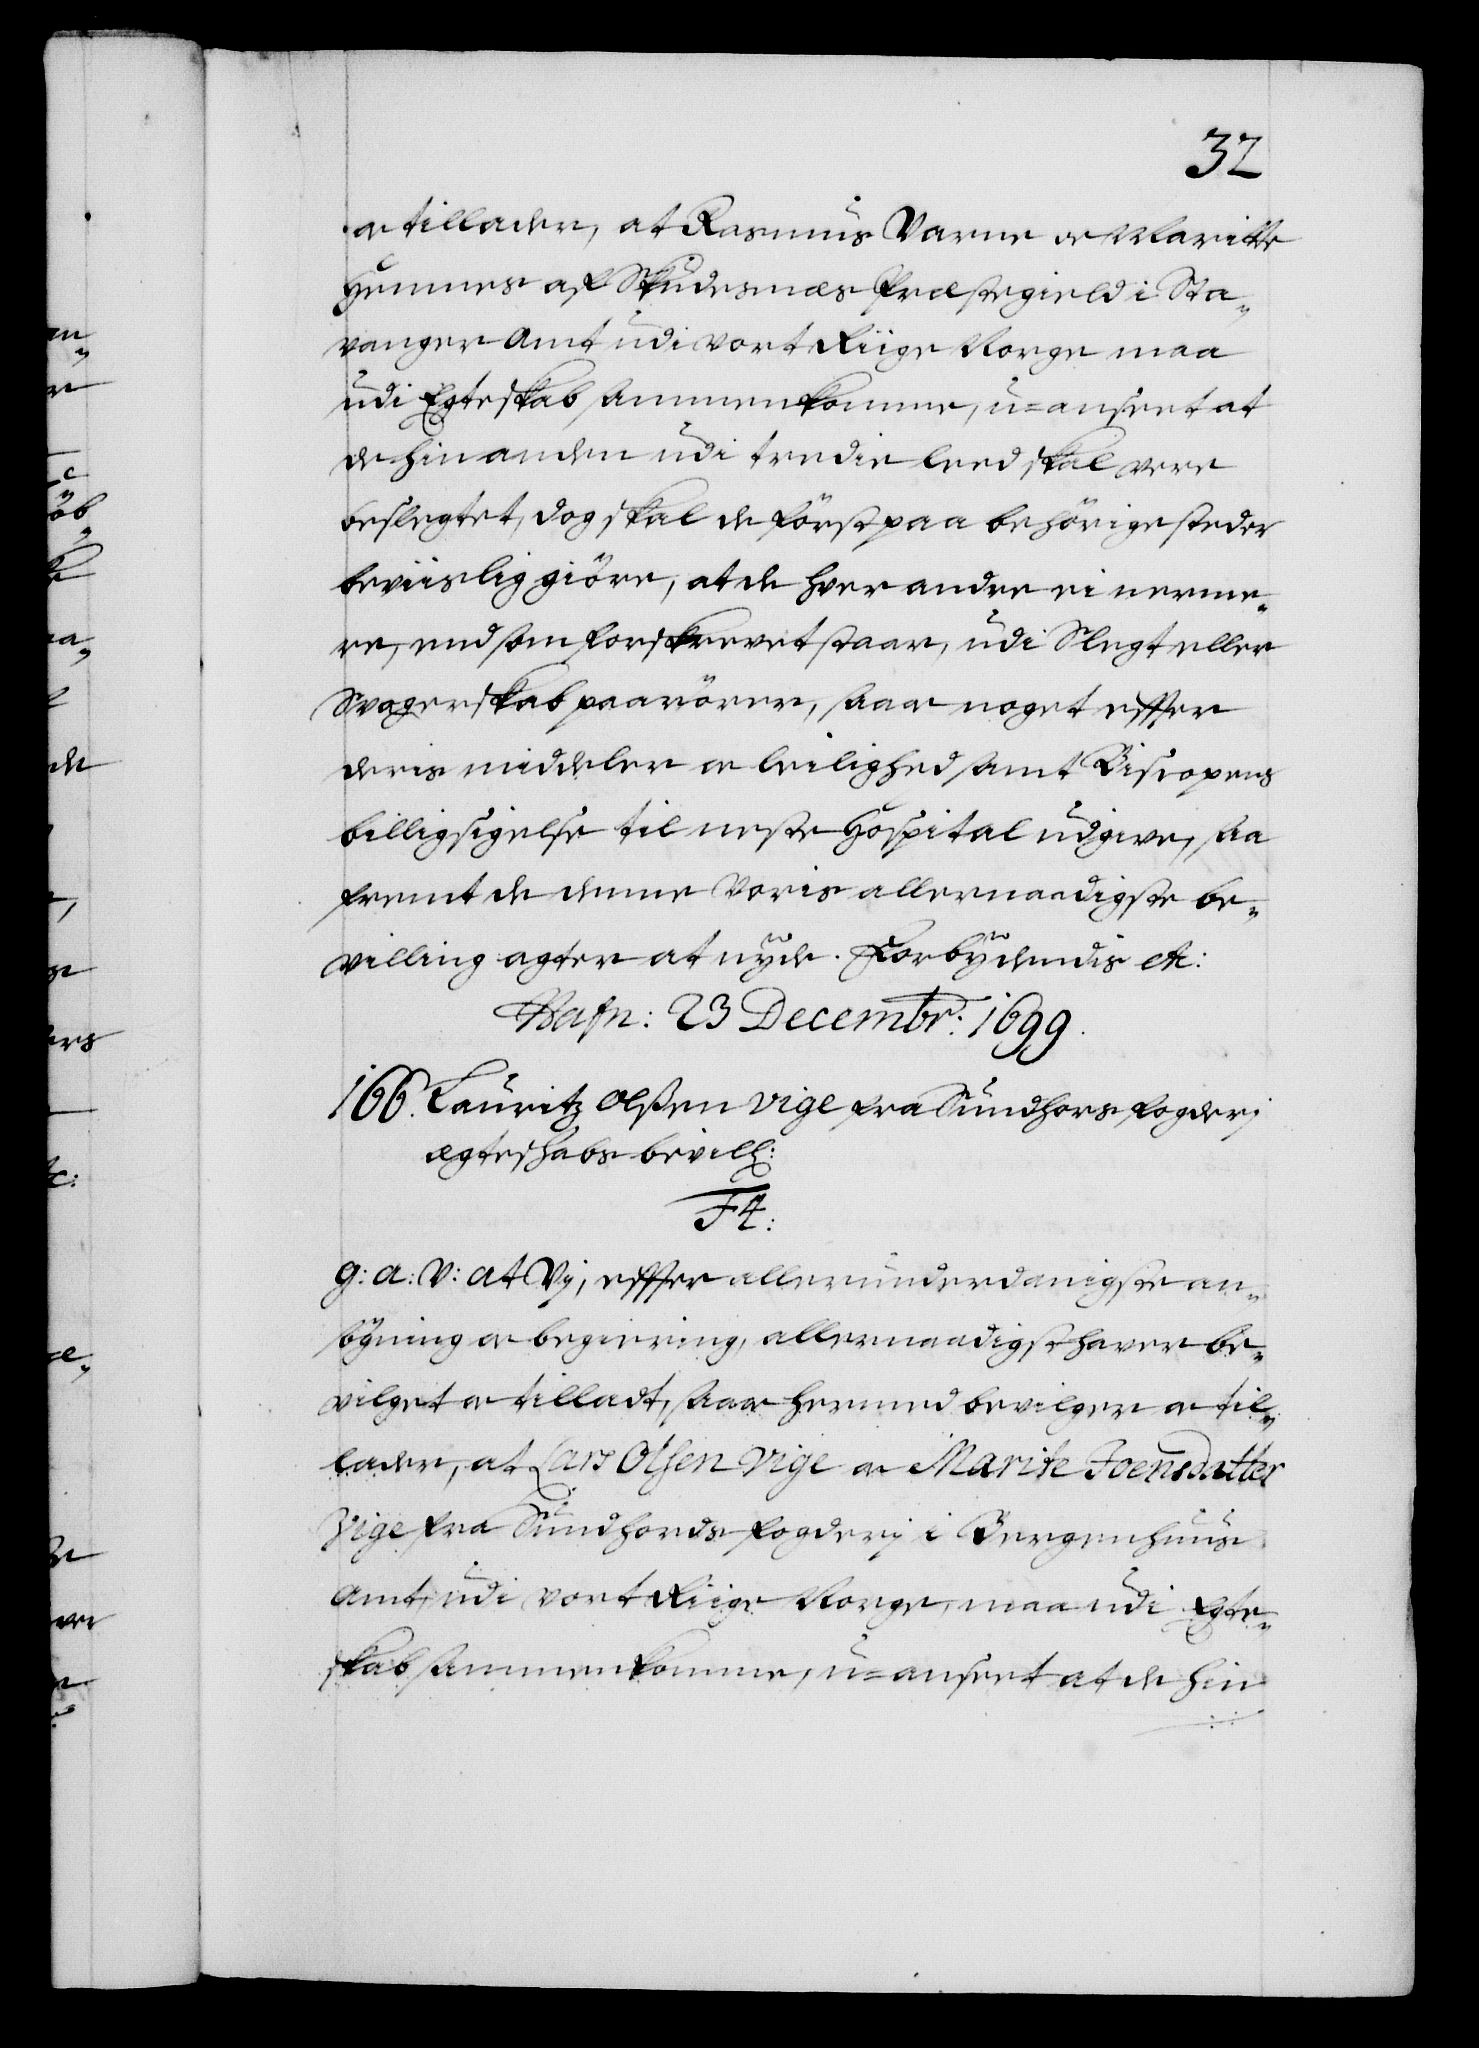 32
og tillader, at Rasmus Varne og Maritte
Hemnes af Skudesnæs Præstegield i Sta-
vanger Amt udi vort Riige Norge maa
udi Egteskab sammenkomme, u=anseet at
de hinanden udi tredie leed skal vere
beslegtet, dog skal de först paa behörige steder
beviislig giöre, at de hver andre ei nerme-
re, end som forskrevet staar, udi Slegt eller
Svogerskab paarörer, saa og noget effter
deris middeler og leilighed samt Biscopens
billigsigelse til neste Hospital udgive, saa
fremt de denne Voris allernaadigste be-
villing agter at nyde. Forbydendis etc:
Hafn: 23 Decembr: 1699.
166. Lauritz Olssen Vige fra Sundhors fogderj
ægteskabs bevill:
F4:
G: A: V: at Vj, effter allerunderdanigste an-
sögning og begiering, allernaadigst haver be-
vilget og tilladt, saa og hermed bevilger og til-
lader, at Lars Olsen Vige og Marite Joensdatter
Vige fra Sundhords fogderj i Bergenhuus
Amt, udi vort Riige Norge, maa udi Egte-
skab sammenkomme, u=anseet at de hin